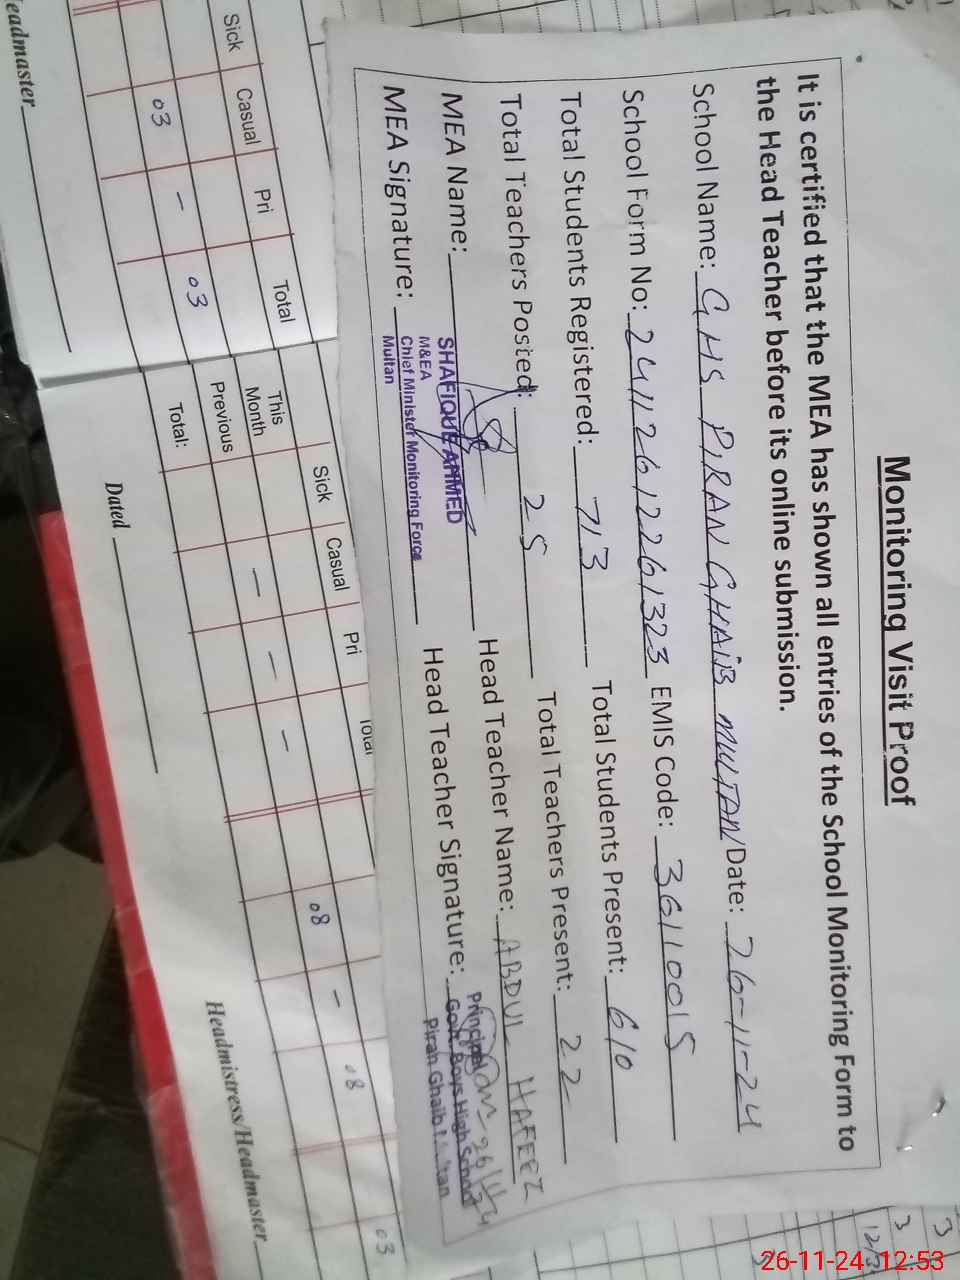 Monitoring Visit Proof
It is certified that the MEA has shown all entries of the School Monitoring Form to
the Head Teacher before its online submission.
School Name: GHS PIRAN GHAIB MULTAN Date: 26-11-24
School Form No: 24112612261323 EMIS Code: 36110015
Total Students Registered: 713 Total Students Present: 610
Total Teachers Posted: 25 Total Teachers Present: 22
MEA Name: SHAFIQUE AHMED Head Teacher Name: ABDUL HAFEEZ
M&EA
Chief Minister Monitoring Force
Multan
MEA Signature: Head Teacher Signature:
Principal
Govt. Boys High School
Piran Ghaib
26/11/24
Sick Casual Pri Total
03 - 03
Headmaster
Sick Casual Pri Total
This Month - - - 08 - 08 03
Previous
Total:
Dated Headmistress/Headmaster
3
3
26-11-24 12:53